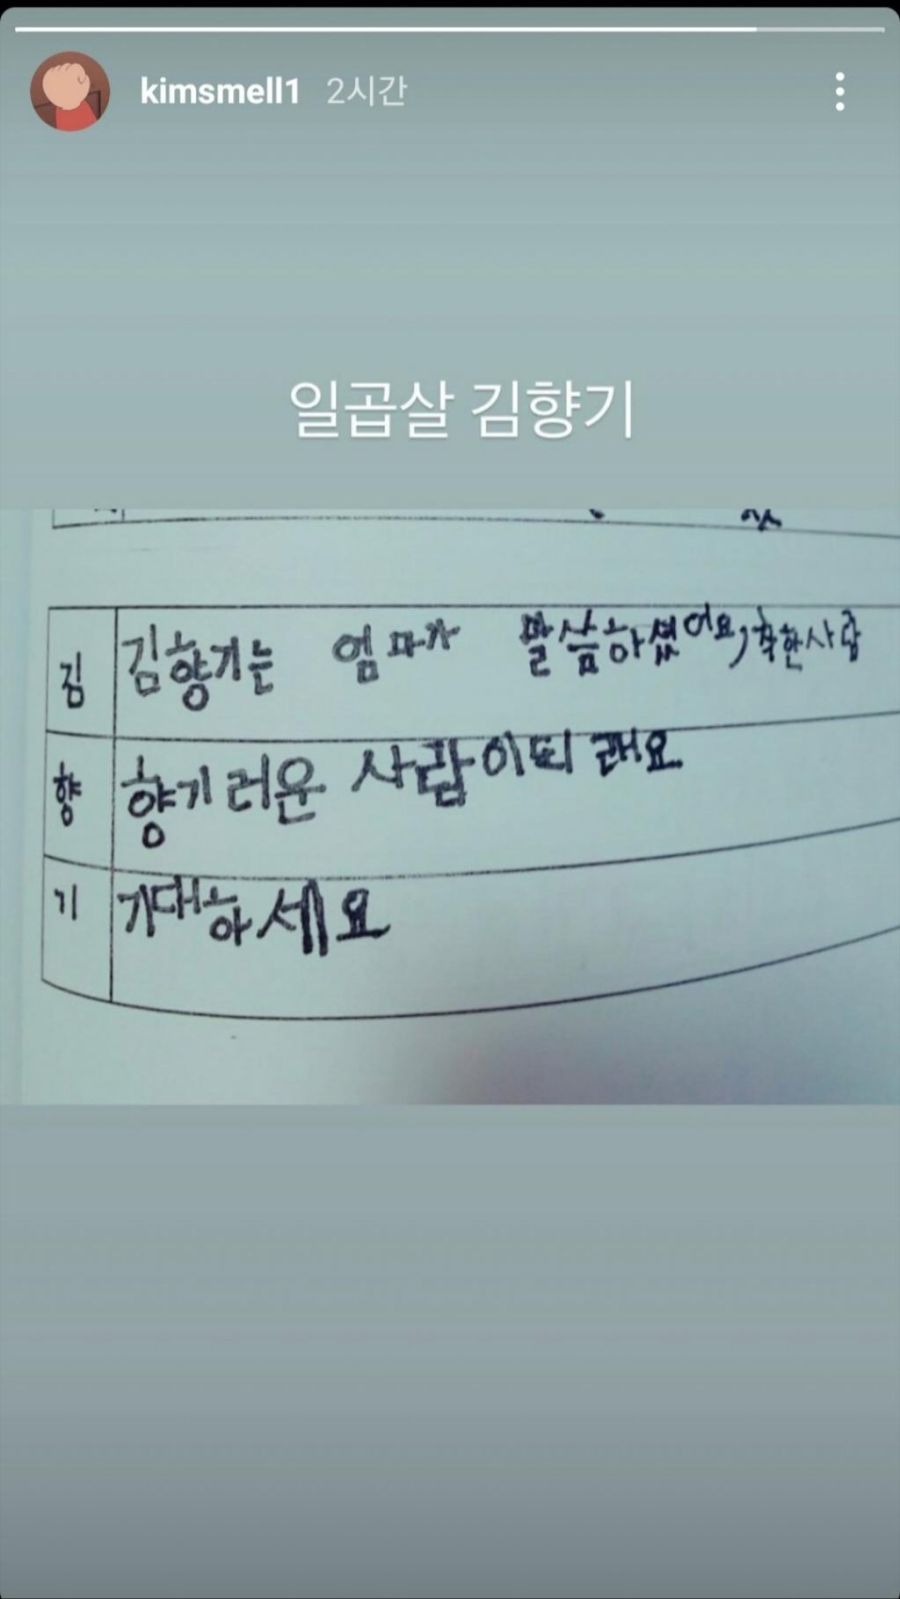 kimsmell1 2시간
일곱살 김향기
김 김향기는 엄마가 말씀하셨어요, 착한사람
향 향기러운 사람이 되래요.
기 기대하세요